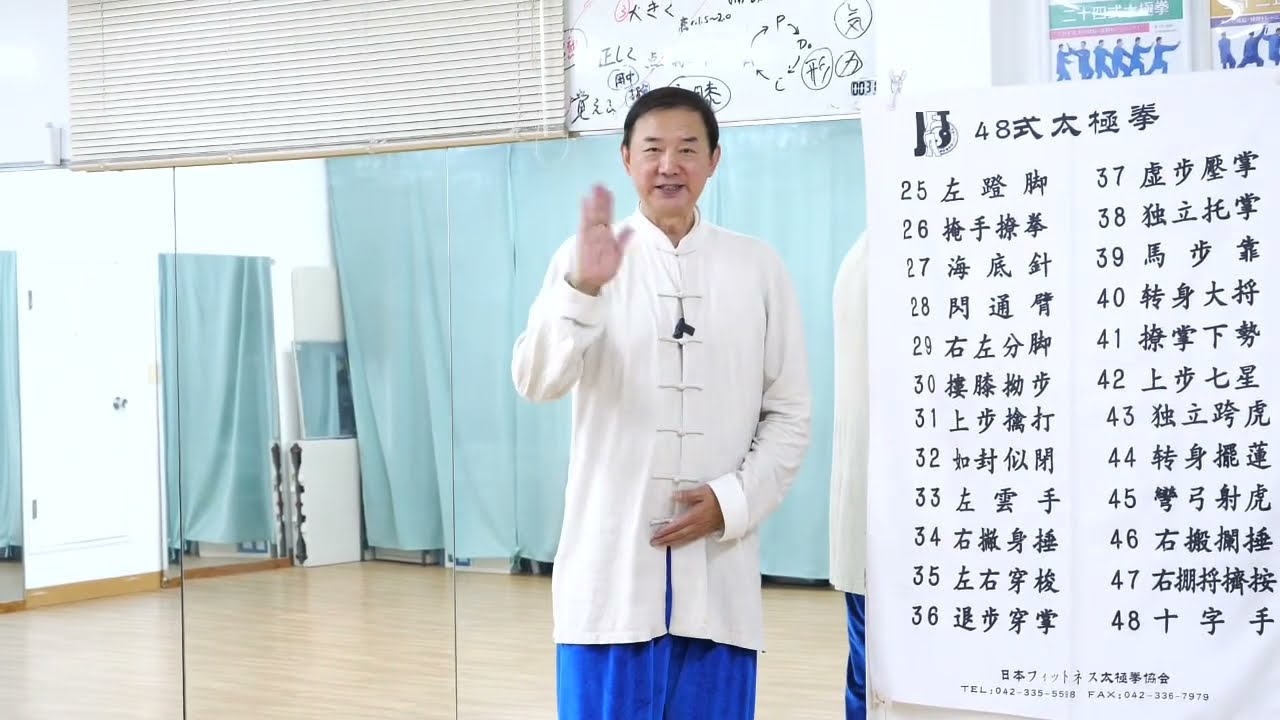 ③大きく
高い1.5~2.0
正しく 点
用中
覚える
膝
P
D。
C
気
形
力
003
二十四式太極拳
48式太極拳
25 左蹬脚
26 掩手撩拳
27 海底針
28 閃通臂
29 右左分脚
30 摟膝拗步
31 上步擒打
32 如封似閉
33 左雲手
34 右撇身捶
35 左右穿梭
36 退步穿掌
37 虚步壓掌
38 独立托掌
39 馬步靠
40 转身大捋
41 撩掌下勢
42 上步七星
43 独立跨虎
44 转身擺蓮
45 彎弓射虎
46 右搬攔捶
47 右掤捋擠按
48 十字手
日本フィットネス太極拳協会
TEL:042-335-5598 FAX:042-336-7979